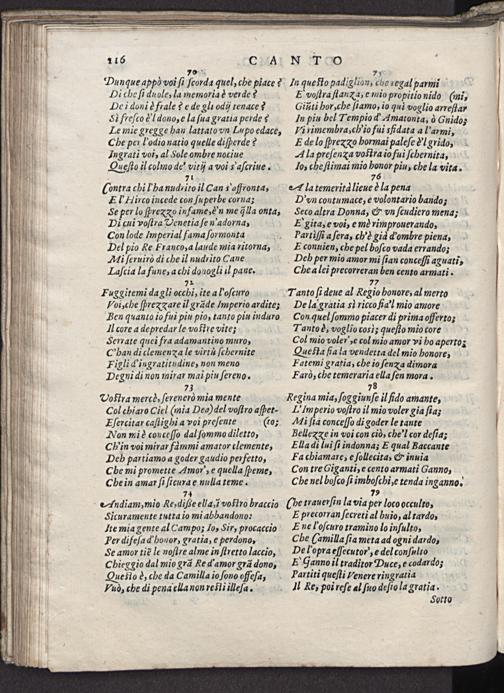 116
CANTO
70
Dunque appò voi si scorda quel, che piace?
Di che si duole, la memoria è verde?
De i doni è frale? e de gli odij tenace?
Sì fresco è l'dono, e la sua gratia perde?
Le mie gregge han lattato vn Lupo edace,
Che per l'odio natio quelle disperde?
Ingrati voi, al Sole ombre nociue
Questo il colmo de' vitij a voi s'ascriue.
71
Contra chi l'ha nudrito il Can s'affronta,
E l'Hirco incede con superbe corna;
Se per lo sprezzo infame, è'n me q̃lla onta,
Di cui vostra Venetia se n'adorna,
Con lode Imperial fama sormonta
Del pio Re Franco, a laude mia ritorna,
Mi seruirò di che il nudrito Cane
Lascia la fune, a chi donogli il pane.
72
Fuggitemi da gli occhi, ite a l'oscuro
Voi, che sprezzare il grãde Imperio ardite;
Ben quanto io fui più pio, tanto piu induro
Il core a depredar le vostre vite;
Serrate quei fra adamantino muro,
C'han di clemenza le virtù schernite
Figli d'ingratitudine, non meno
Degni di non mirar mai piu sereno.
73
Vostra mercè, serenerò mia mente
Col chiaro Ciel (mia Dea) del vostro aspet-
Esercitar castighi a voi presente (to;
Non mi è concesso dal sommo diletto,
Ch'in voi mirar fammi amator clemente,
Deh partiamo a goder gaudio perfetto,
Che mi promette Amor', e quella speme,
Che in amar si sicura e nulla teme.
74
Andiam, mio Re, disse ella, ĩ vostro braccio
Sicuramente tutta io mi abbandono:
Ite mia gente al Campo; Io, Sir, procaccio
Per difesa d'honor, gratia, e perdono,
Se amor tiẽ le nostre alme in stretto laccio,
Chieggio dal mio grã Re d'amor grã dono,
Questo è, che da Camilla io sono offesa,
Vuò, che di pena ella non resti illesa.
75
In questo padiglion, che regal parmi
E vostra stanza, e mio propitio nido (mi,
Giũti hor, che siamo, io quì voglio arrestar
In piu bel Tempio d'Amatonta, ò Gnido;
Vi rimembra, ch'io fui sfidata a l'armi,
E de lo sprezzo hormai palese è'l grido,
A la presenza vostra io fui schernita,
Io, che stimai mio honor piu, che la vita.
76
A la temerità lieue è la pena
D'vn contumace, e volontario bando;
Seco altra Donna, & vn scudiero mena;
E' gita, e voi, e mè rimprouerando,
Partissi a sera, ch'è già d'ombre piena,
E conuien, che pel bosco vada errando;
Deh per mio amor mi sian concessi aguati,
Che a lei precorreran ben cento armati.
77
Tanto si deue al Regio honore, al merto
De la gratia sì ricco fia'l mio amore
Con quel sommo piacer di prima offerto;
Tanto è, voglio così; questo mio core
Col mio voler', e col mio amor vi ho aperto;
Questa sia la vendetta del mio honore,
Fatemi gratia, che io senza dimora
Farò, che temeraria ella sen mora.
78
Regina mia, soggiunse il fido amante,
L'Imperio vostro il mio voler gia sia;
Mi sia concesso di goder le tante
Bellezze in voi con ciò, che'l cor desia;
Ella di lui fè indonna; E qual Baccante
Fa chiamare, e sollecita, & inuia
Con tre Giganti, e cento armati Ganno,
Che nel bosco si imboschi, e tenda inganno.
79
Che trauersin la via per loco occulto,
E precorran secreti al buio, al tardo,
E ne l'oscuro tramino lo insulto,
Che Camilla sia meta ad ogni dardo,
De l'opra essecutor', e del consulto
E' Ganno il traditor Duce, e codardo;
Partiti questi Venere ringratia
Il Re, poi rese al suo desio la gratia.
Sotto